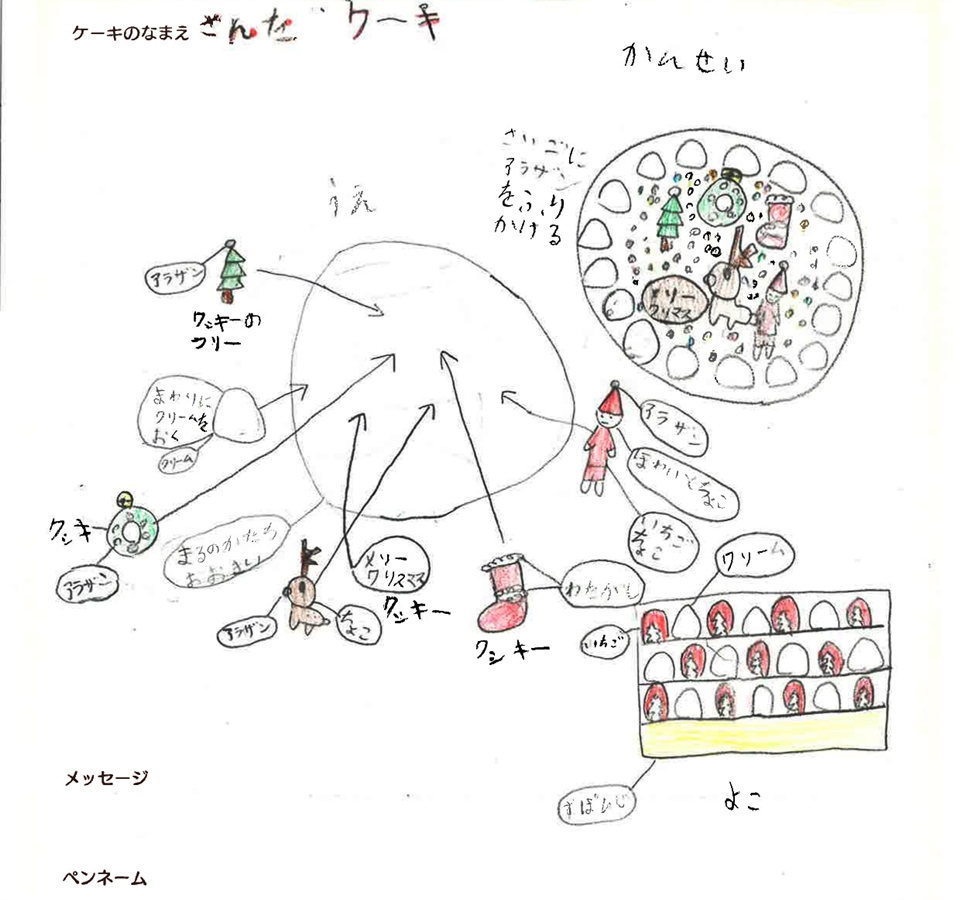 ケーキのなまえ さんた ケーキ
かんせい
さいごに
アラザン
をふり
かける
うえ
アラザン
クッキーの
ツリー
まわりに
クリームを
おく
クリーム
クッキー
アラザン
まるのかたち
おおきい
アラザン
ちょこ
メリー
クリスマス
クッキー
クッキー
わたがし
アラザン
ほわいとちょこ
いちご
ちょこ
メリー
クリスマス
クリーム
いちご
すぽんじ
よこ
メッセージ
ペンネーム